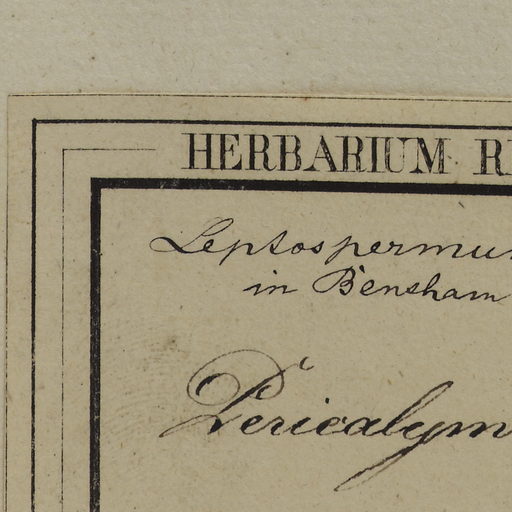 HERBARIUM R
Leptospermu
in Bensham
Pericalym